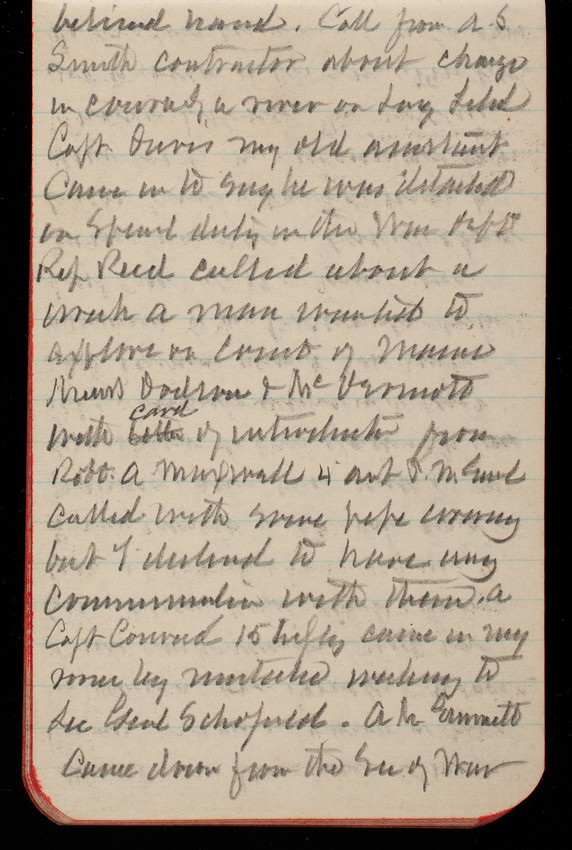 behind hand. Call from A. S.
Smith contractor about charge
in a river on Long Isld
Capt Davis my old assistant
Came in to say he was detailed
on Special duty in the War Dept
Rep Reed called about a
work a man wanted to
explore on Coast of Maine
Messrs Dodson & McDermott
with card of introduction from
Robt. A Maxwell 4 ast P. M Genl
called with some pipe
but I declined to have any
communication with them. A
Capt Conrad 15 Infty came in my
room by mistake wishing to
See Genl Schofield. A M
Came down from the Sec of War